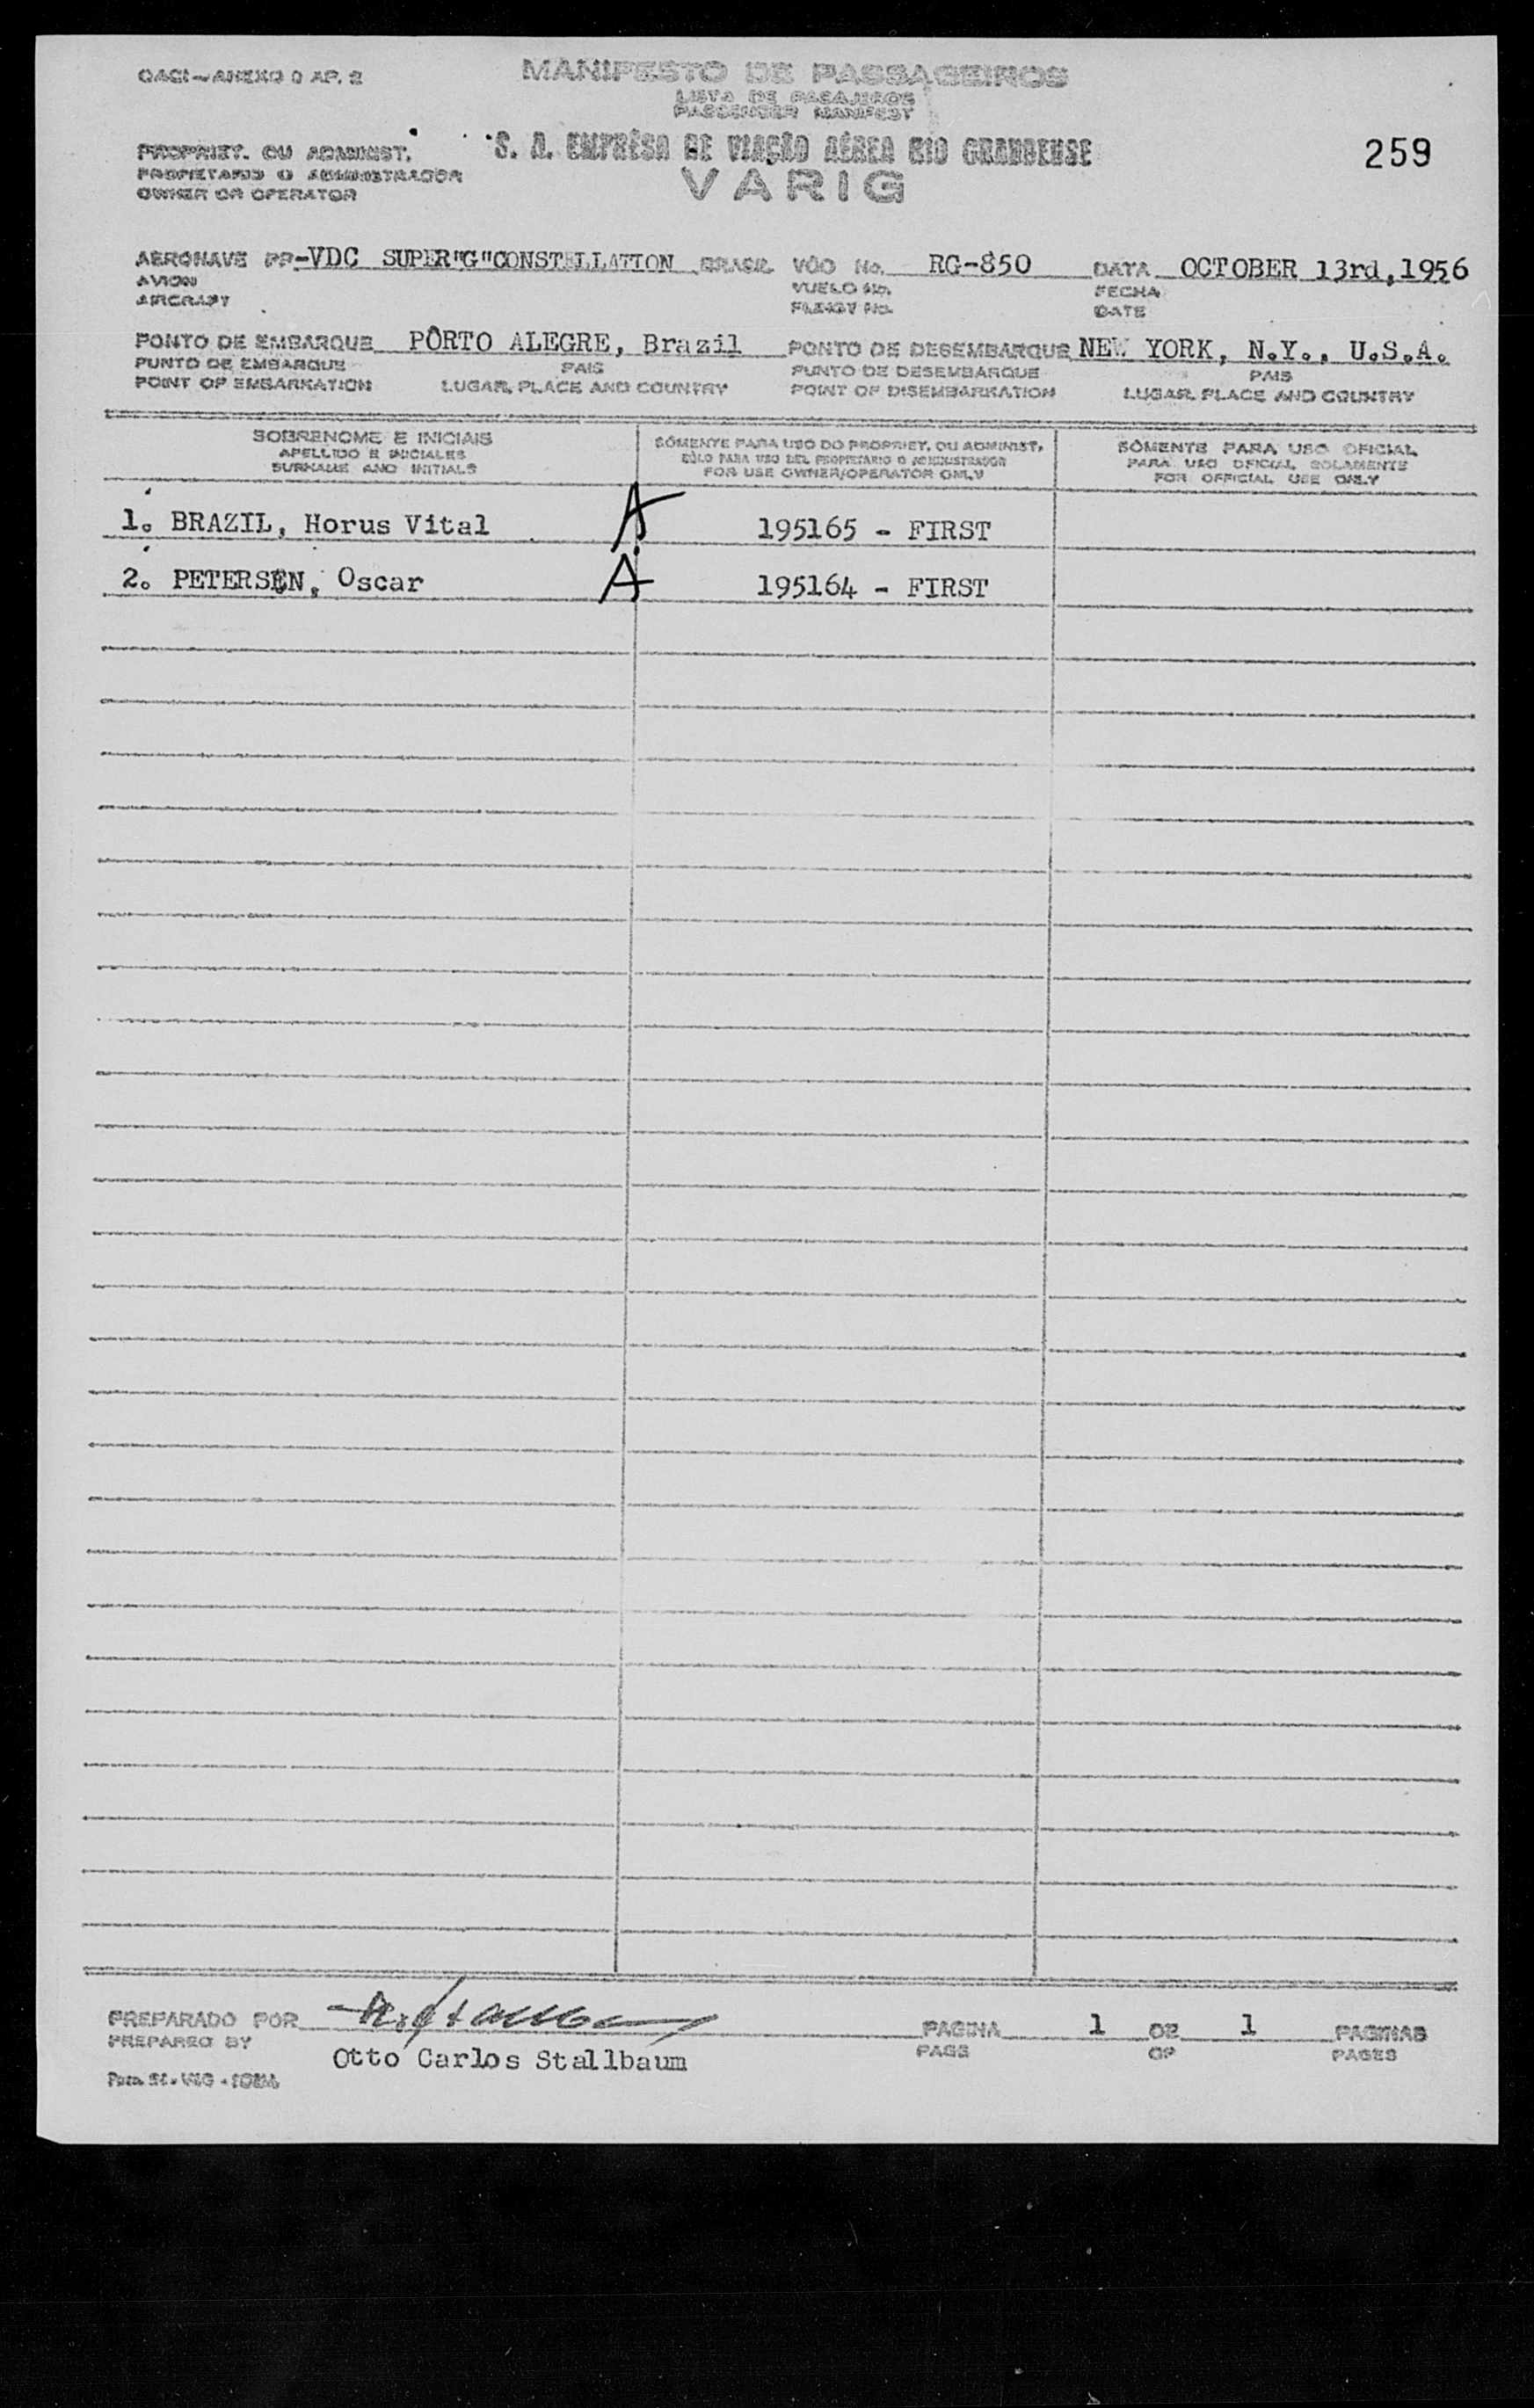 OACI — ANEXO 9 AP. 2
MANIFESTO DE PASSAGEIROS
LISTA DE PASAJEROS
PASSENGER MANIFEST
259
PROPRIET. OU ADMINIST.
PROPIETARIO O ADMINISTRADOR
OWNER OR OPERATOR
S. A. EMPRÊSA DE VIAÇÃO AÉREA RIO GRANDENSE
VARIG
AERONAVE PP-VDC SUPER"G"CONSTELLATION BRASIL VÔO No. RG-850 DATA OCTOBER 13rd,1956
AVION VUELO No. FECHA
AIRCRAFT FLIGHT No. DATE
PONTO DE EMBARQUE PÔRTO ALEGRE, Brazil PONTO DE DESEMBARQUE NEW YORK, N.Y., U.S.A.
PUNTO DE EMBARQUE PAIS PUNTO DE DESEMBARQUE PAIS
POINT OF EMBARKATION LUGAR, PLACE AND COUNTRY POINT OF DISEMBARKATION LUGAR, PLACE AND COUNTRY
SOBRENOME E INICIAIS SÓMENTE PARA USO DO PROPRIET. OU ADMINIST. SÓMENTE PARA USO OFICIAL
APELLIDO E INICIALES SÓLO PARA USO DEL PROPIETARIO O ADMINISTRADOR PARA USO OFICIAL SOLAMENTE
SURNAME AND INITIALS FOR USE OWNER/OPERATOR ONLY FOR OFFICIAL USE ONLY
1. BRAZIL, Horus Vital A 195165 - FIRST
2. PETERSEN, Oscar A 195164 - FIRST
PREPARADO POR PAGINA 1 DE 1 PAGINAS
PREPARED BY Otto Carlos Stallbaum PAGE OF PAGES